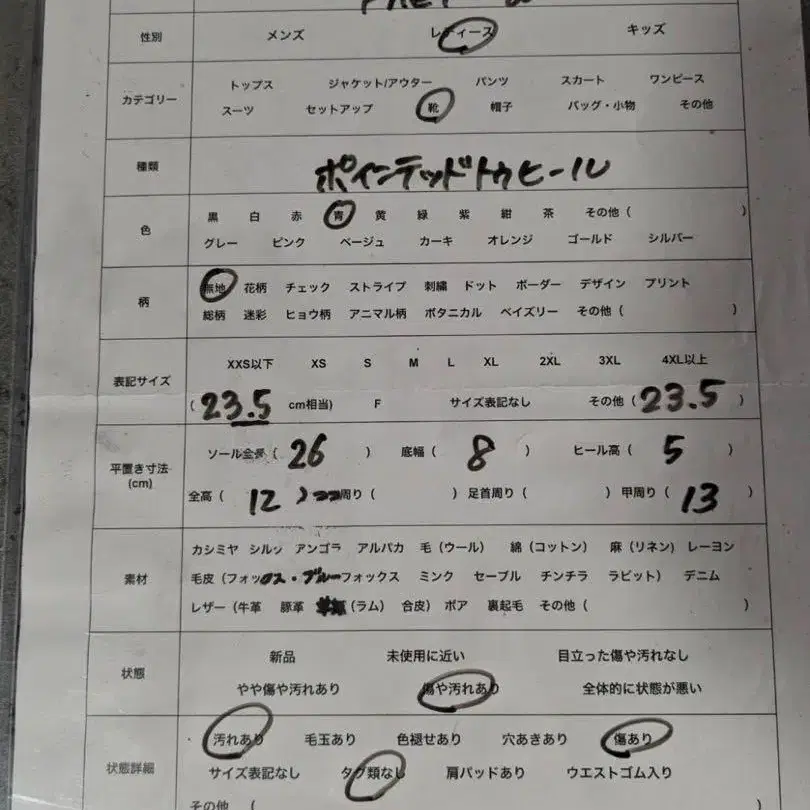 性別 メンズ レディース キッズ
カテゴリー トップス ジャケット/アウター パンツ スカート ワンピース
スーツ セットアップ 靴 帽子 バッグ・小物 その他
種類 ポインテッドトゥヒール
色 黒 白 赤 青 黄 緑 紫 紺 茶 その他 ( )
グレー ピンク ベージュ カーキ オレンジ ゴールド シルバー
柄 無地 花柄 チェック ストライプ 刺繍 ドット ボーダー デザイン プリント
総柄 迷彩 ヒョウ柄 アニマル柄 ボタニカル ペイズリー その他 ( )
表記サイズ XXS以下 XS S M L XL 2XL 3XL 4XL以上
( 23.5 cm相当) F サイズ表記なし その他 ( 23.5 )
平置き寸法 (cm) ソール全長 ( 26 ) 底幅 ( 8 ) ヒール高 ( 5 )
全高 ( 12 ) 周り ( ) 足首周り ( ) 甲周り ( 13 )
素材 カシミヤ シルク アンゴラ アルパカ 毛 (ウール) 綿 (コットン) 麻 (リネン) レーヨン
毛皮 (フォックス・ブルーフォックス ミンク セーブル チンチラ ラビット) デニム
レザー (牛革 豚革 (ラム) 合皮) ボア 裏起毛 その他 ( )
状態 新品 未使用に近い 目立った傷や汚れなし
やや傷や汚れあり 傷や汚れあり 全体的に状態が悪い
状態詳細 汚れあり 毛玉あり 色褪せあり 穴あきあり 傷あり
サイズ表記なし タグ類なし 肩パッドあり ウエストゴム入り
その他 (